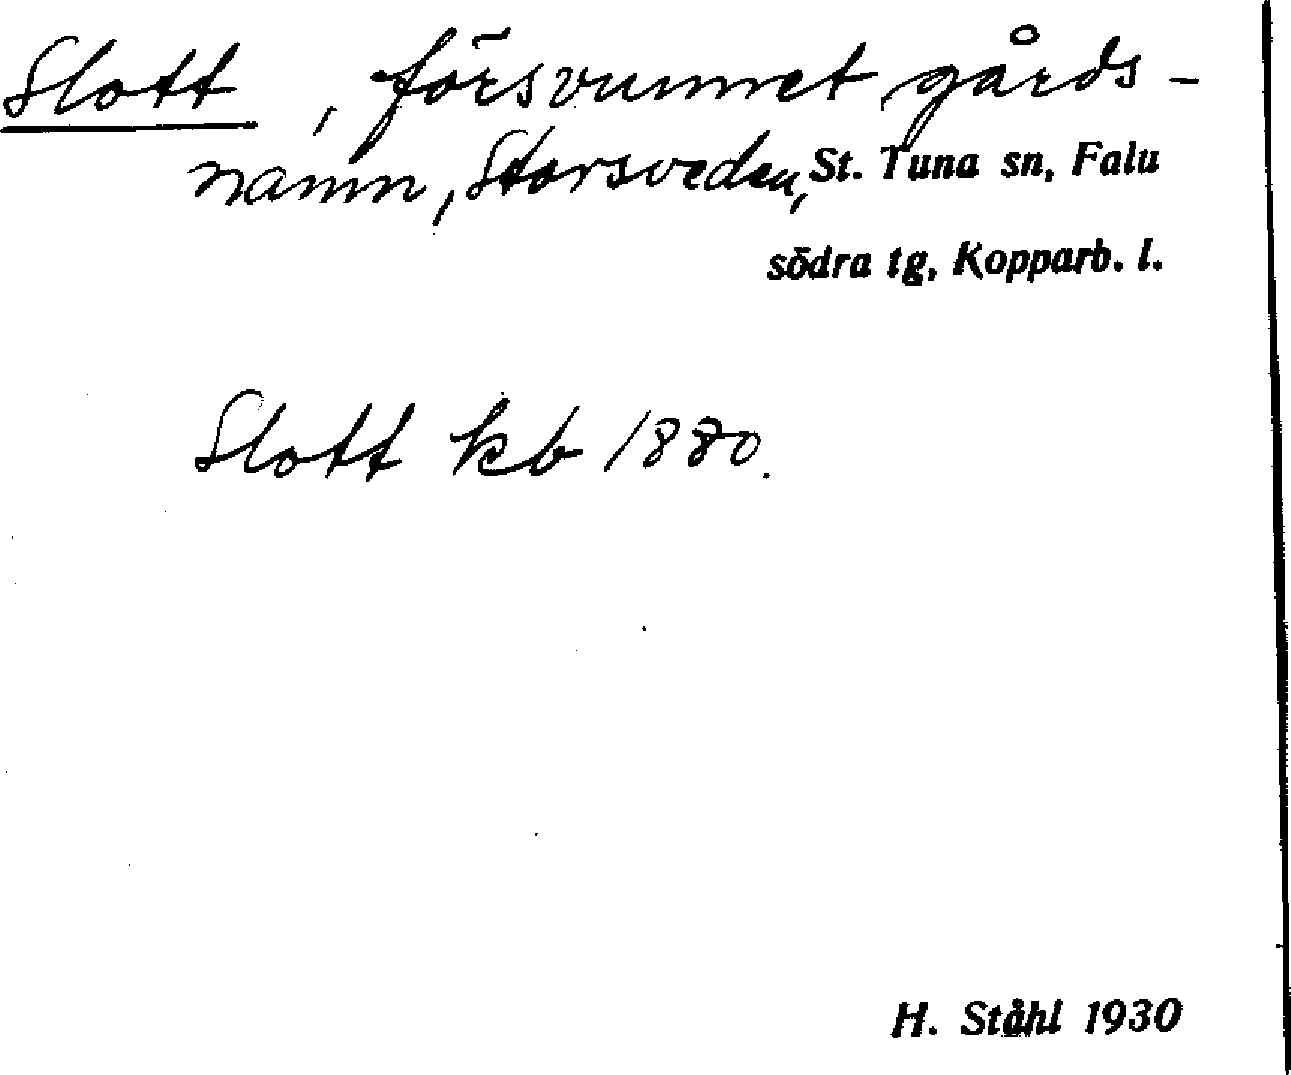 Slott, försvunnet gårds-
namn, Storsveden, St. Tuna sn, Falu
södra tg, Kopparb. l.
Slott kb 1880.
H. Ståhl 1930